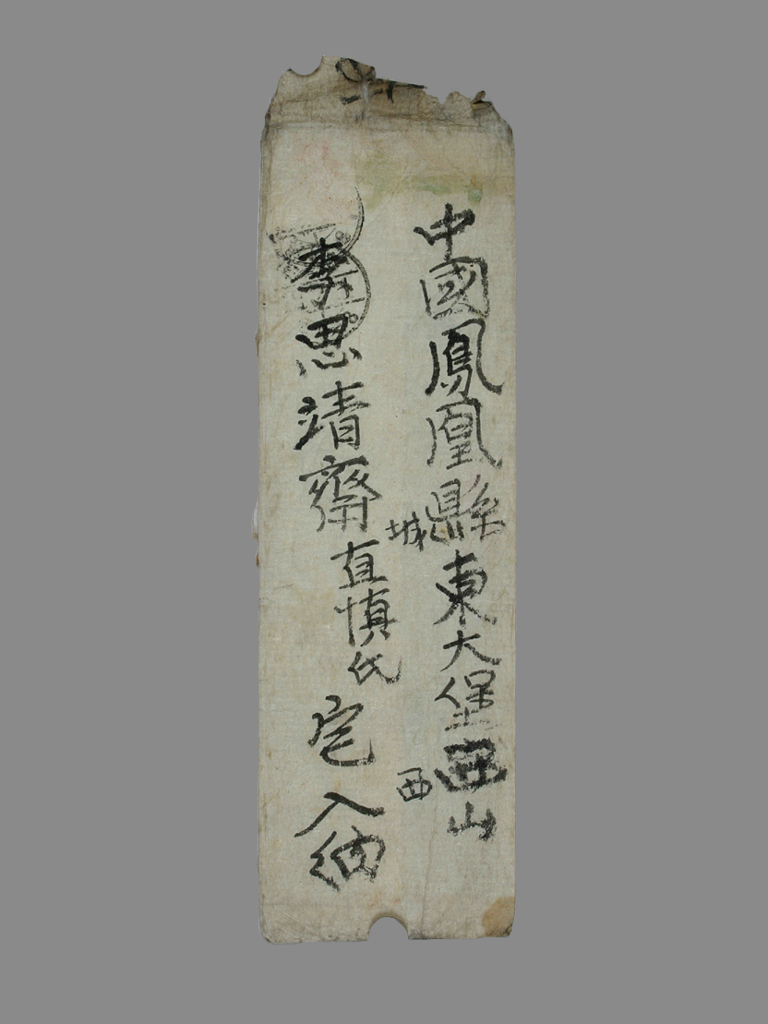 中國鳳凰縣城東大堡西山
西
李思靖齋直愼氏宅入納